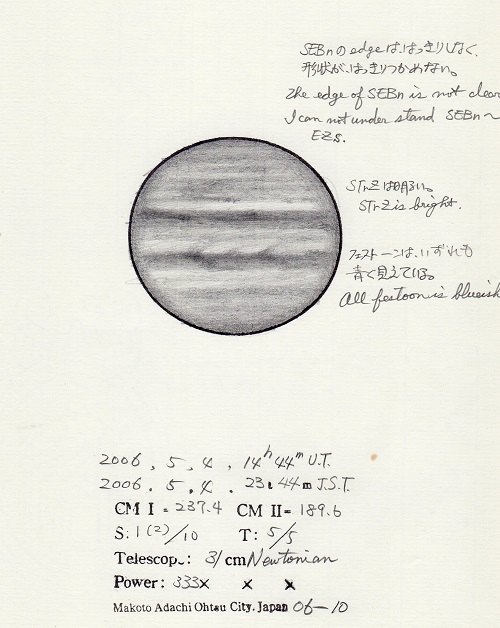 SEBnのedgeは、はっきりしなく、
形状が、はっきりつかめない。
The edge of SEBn is not clear
I can not under stand SEBn~
EZs.
STrZは明るい。
STrZ is bright.
フェストーンは、いずれも
青く見えている。
All festoon is blueish
2006 . 5 . 4 . 14h 44m U.T.
2006 . 5 . 4 . 23h 44m J.S.T.
CM I = 237.4 CM II = 189.6
S: 1(2)/10 T: 5/5
Telescop.: 31cm Newtonian
Power: 333x x x
Makoto Adachi Ohtsu City, Japan 06-10